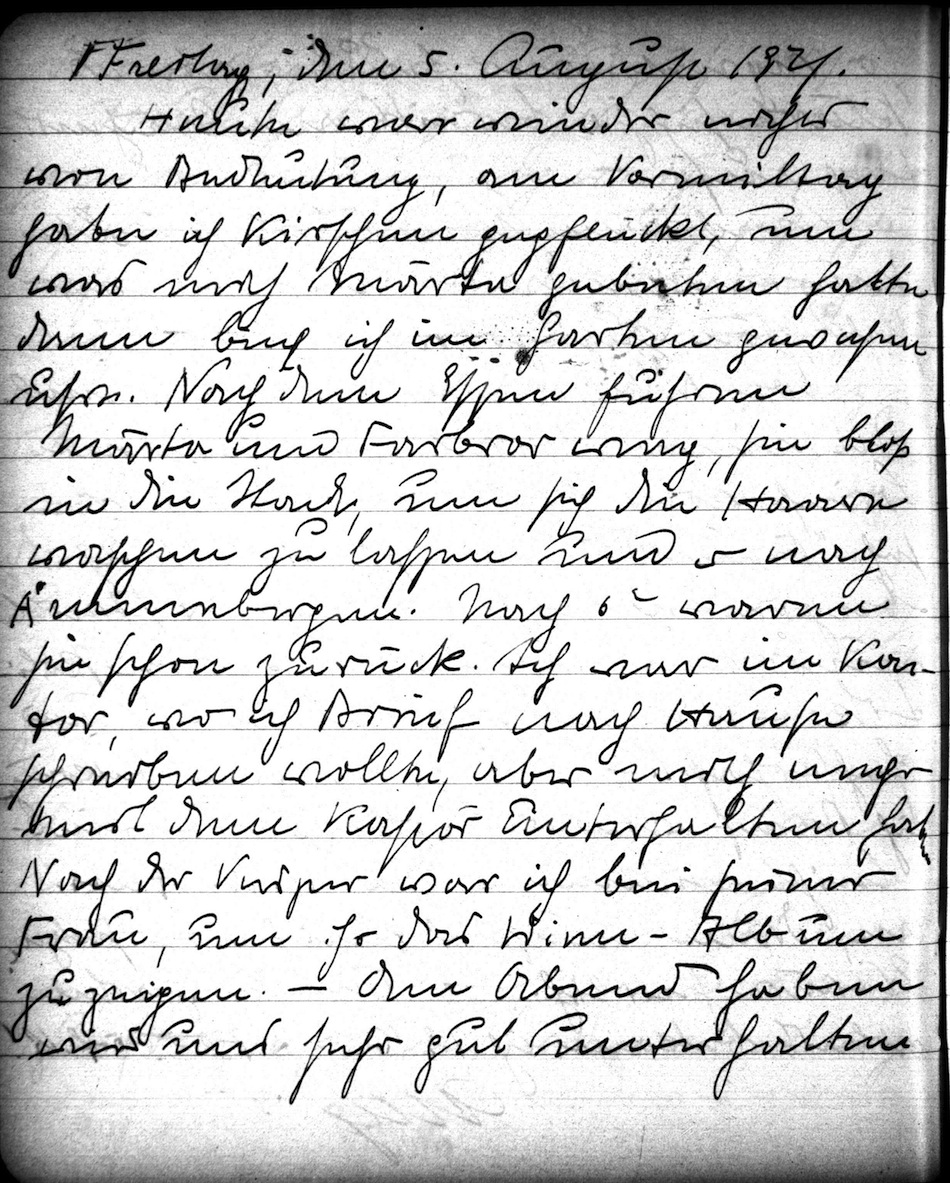 Freitag, den 5. August 1921.
Heute war wieder nichts
von Bedeutung, am Vormittag
habe ich Kirschen gepflückt, um
was mich Märta gebeten hatte
dann bin ich im Garten gewesen
Nach dem Essen fuhren
Märta und Farbror weg, sie bloß
in die Stadt, um sich die Haare
waschen zu lassen und er nach
Nach 6 waren
sie schon zurück. Ich war im Kon-
tor, wo ich Brief nach Hause
schreiben wollte, aber mich mehr
mit dem Kassör Unterhalten habe
Nach der Vesper war ich bei seiner
Frau, um ihr das Wien-Album
zu zeigen. — Den Abend haben
wir uns sehr gut unterhalten